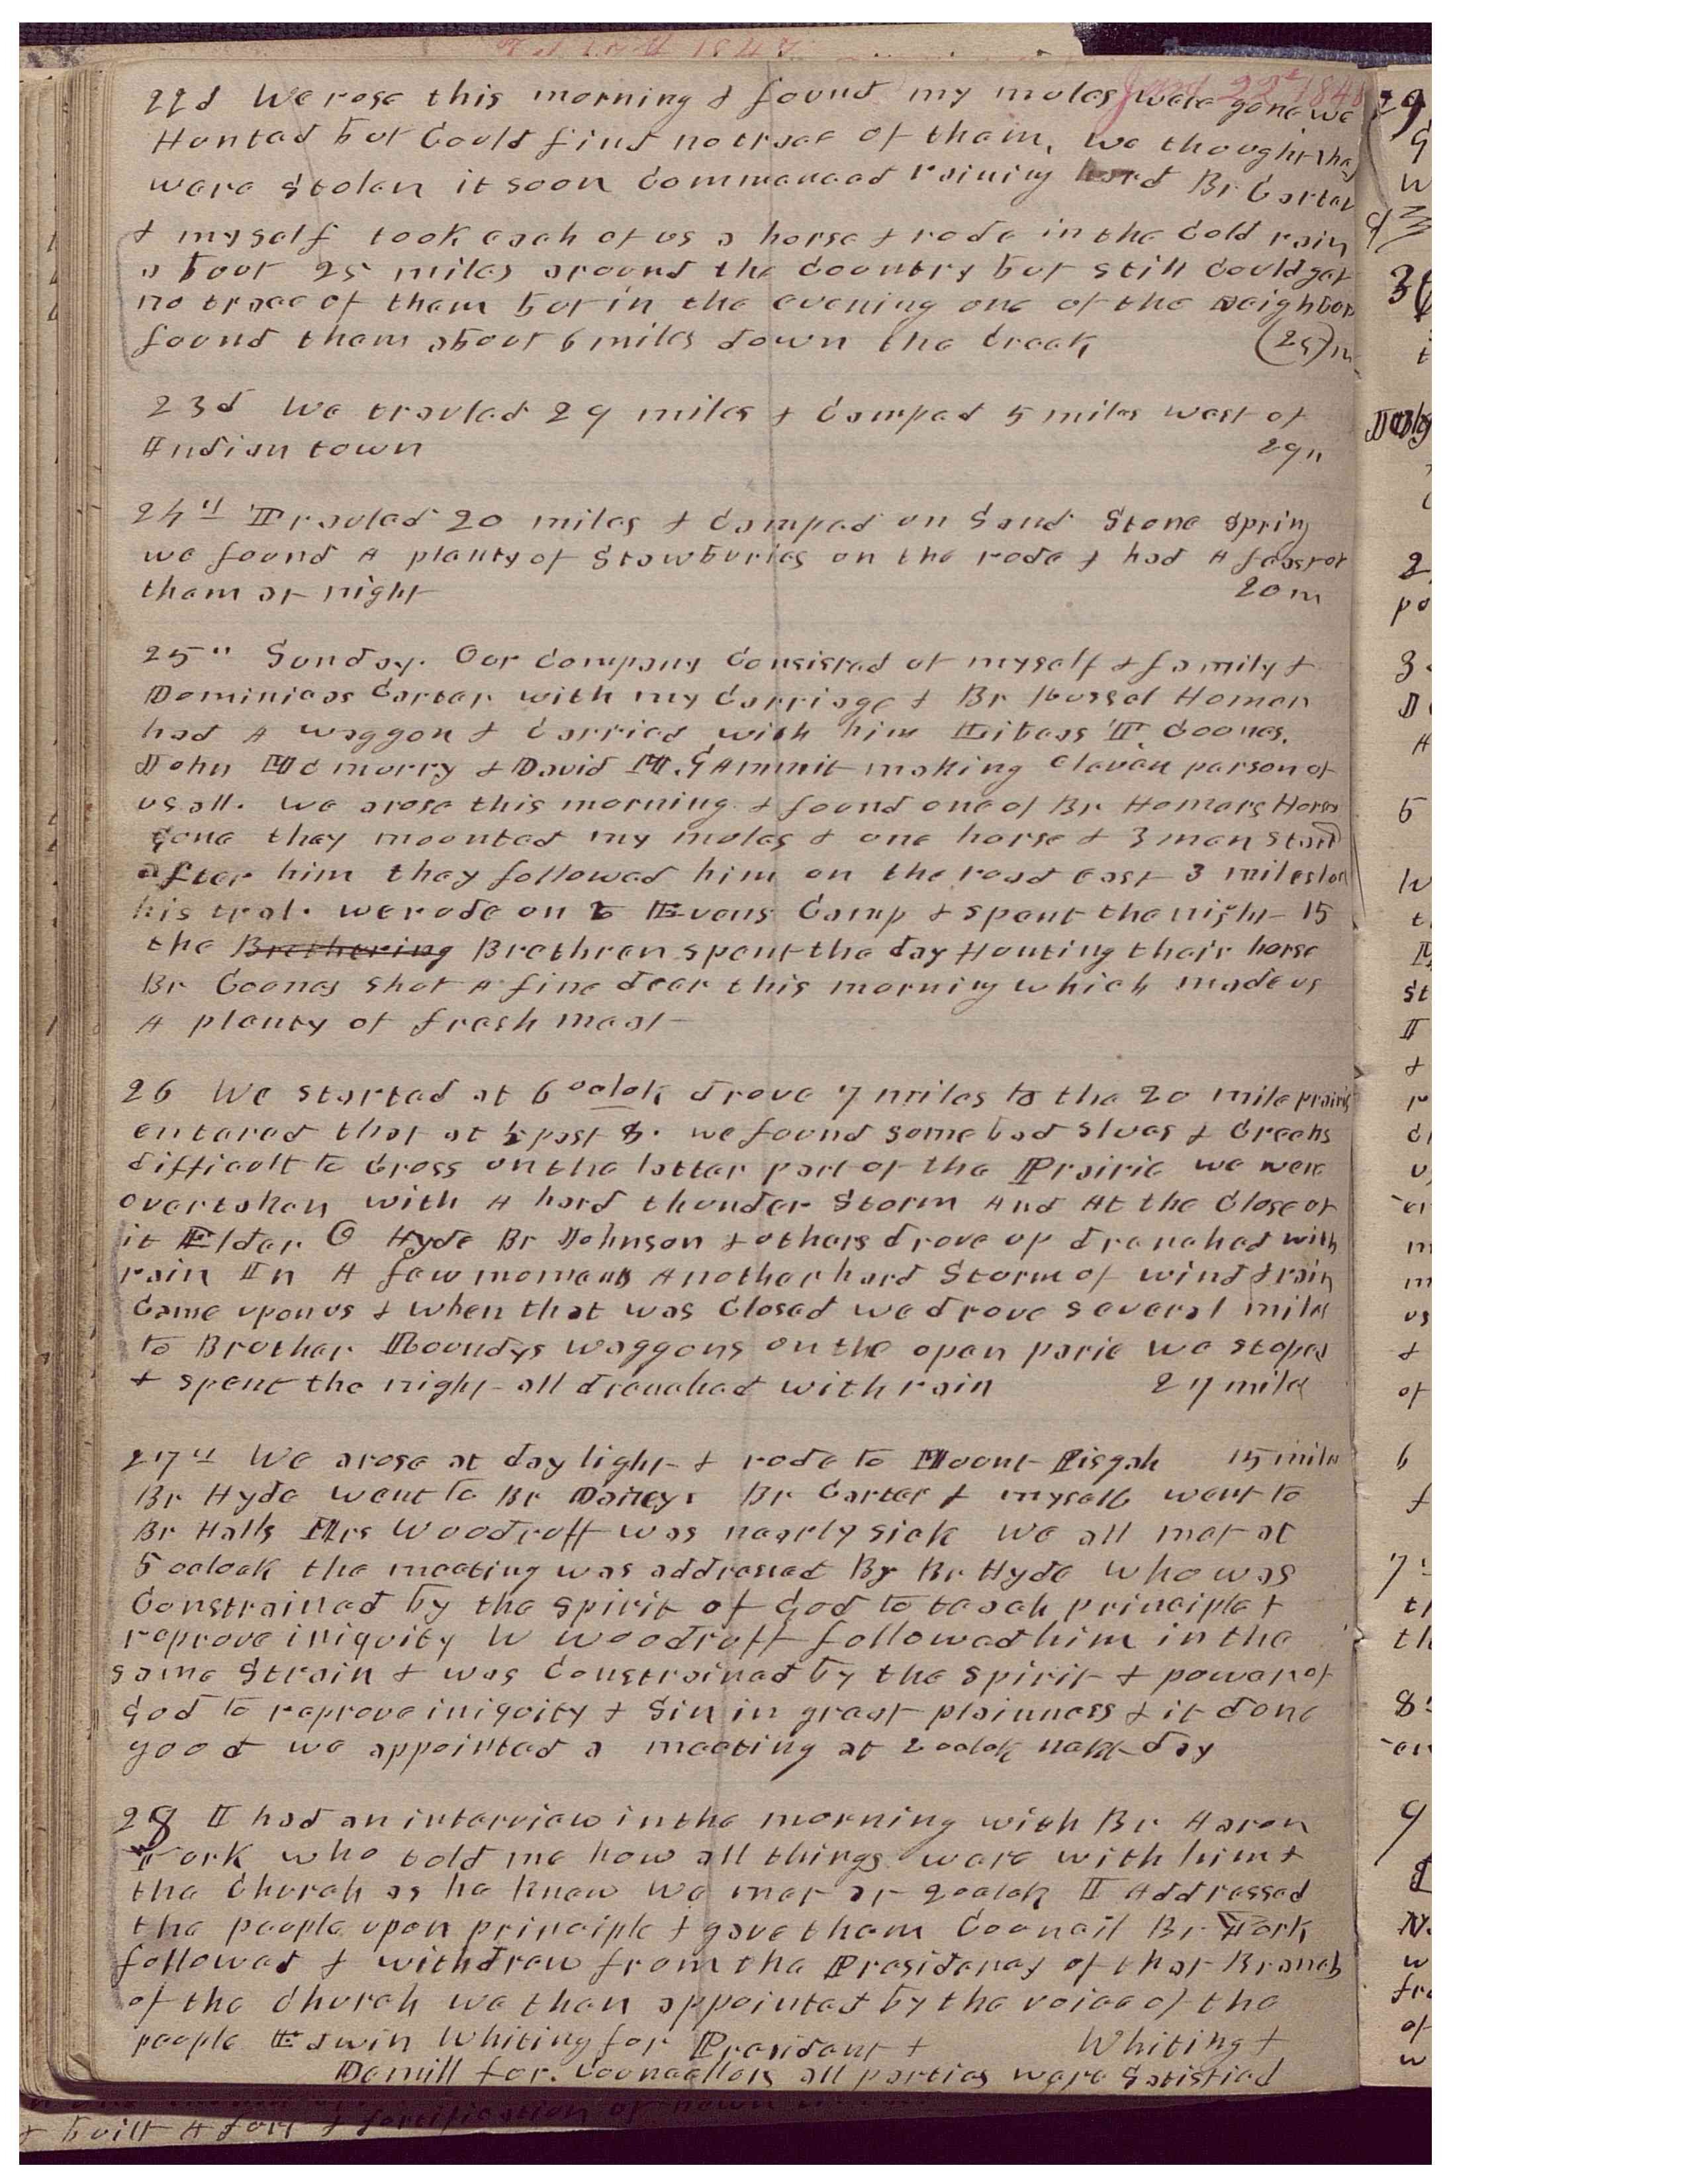 June 22d 1848
22d We rose this morning & found my mules were gone we
Hunted but Could find no trace of them, we thought they
were stolen it soon commenced raining hard Br Carter
& myself took each of us a horse & rode in the cold rain
about 25 miles around the Country but still could get
no trace of them but in the evening one of the neighbors
found them about 6 miles down the creek (25) m
23d We travled 29 miles & camped 5 miles west of
Indian town 29 "
24th Travled 20 miles & camped on Sand Stone Spring
we found A plenty of Stawburies on the rode & had A feast of
them at night 20 m
25" Sunday. Our company consisted of myself & family &
Dominicas Carter with my carriage & Br Russel Homer
had A waggon & carried with him Libeas T. Coones.
John Mcmurry & David M. Gammit making eleven person of
us all. we arose this morning & found one of Br Homers Horses
gone they mounted my mules & one horse & 3 men start
after him they followed him on the road east 3 miles lost
his tral. we rode on to Evens Camp & spent the night 15
the Brethering Brethren spent the day Hunting their horse
Br Coones shot A fine deer this morning which made us
A plenty of fresh meat
26 We started at 6 oclok drove 7 miles to the 20 mile prairie
entered that at ½ past 8. we found some bad slues & creeks
difficult to cross on the latter part of the Prairie we were
overtaken with A hard thunder Storm And At the close of
it Elder O Hyde Br Johnson & others drove up drenched with
rain In A few moments Another hard Storm of wind & rain
Came upon us & when that was Closed we drove several miles
to Brother Roundys waggons on the open parie we stoped
& spent the night all drenched with rain 27 miles
27th We arose at day light & rode to Mount Pisgah 15 miles
Br Hyde went to Br Daileys Br Carter & myself went to
Br Halls Mrs Woodruff was nearly sick We all met at
5 oclock the meeting was addressed By Br Hyde who was
Constrained by the spirit of God to teach principle &
reprove iniquity W Woodruff followed him in the
same Strain & was Constrained by the spirit & power of
God to reprove iniquity & Sin in great plainness & it done
good we appointed a meeting at 2 oclok next day
28 I had an interview in the morning with Br Aaron
York who told me how all things were with him &
the church as he knew We met at 2 oclok I Addressed
the people upon principle & gave them Council Br York
followed & withdrew from the Presidency of that Branch
of the church we then appointed by the voice of the
people Edwin Whiting for President & Whiting &
Demill for. Councellors all parties were Satisfied
& built A fort & fortification of